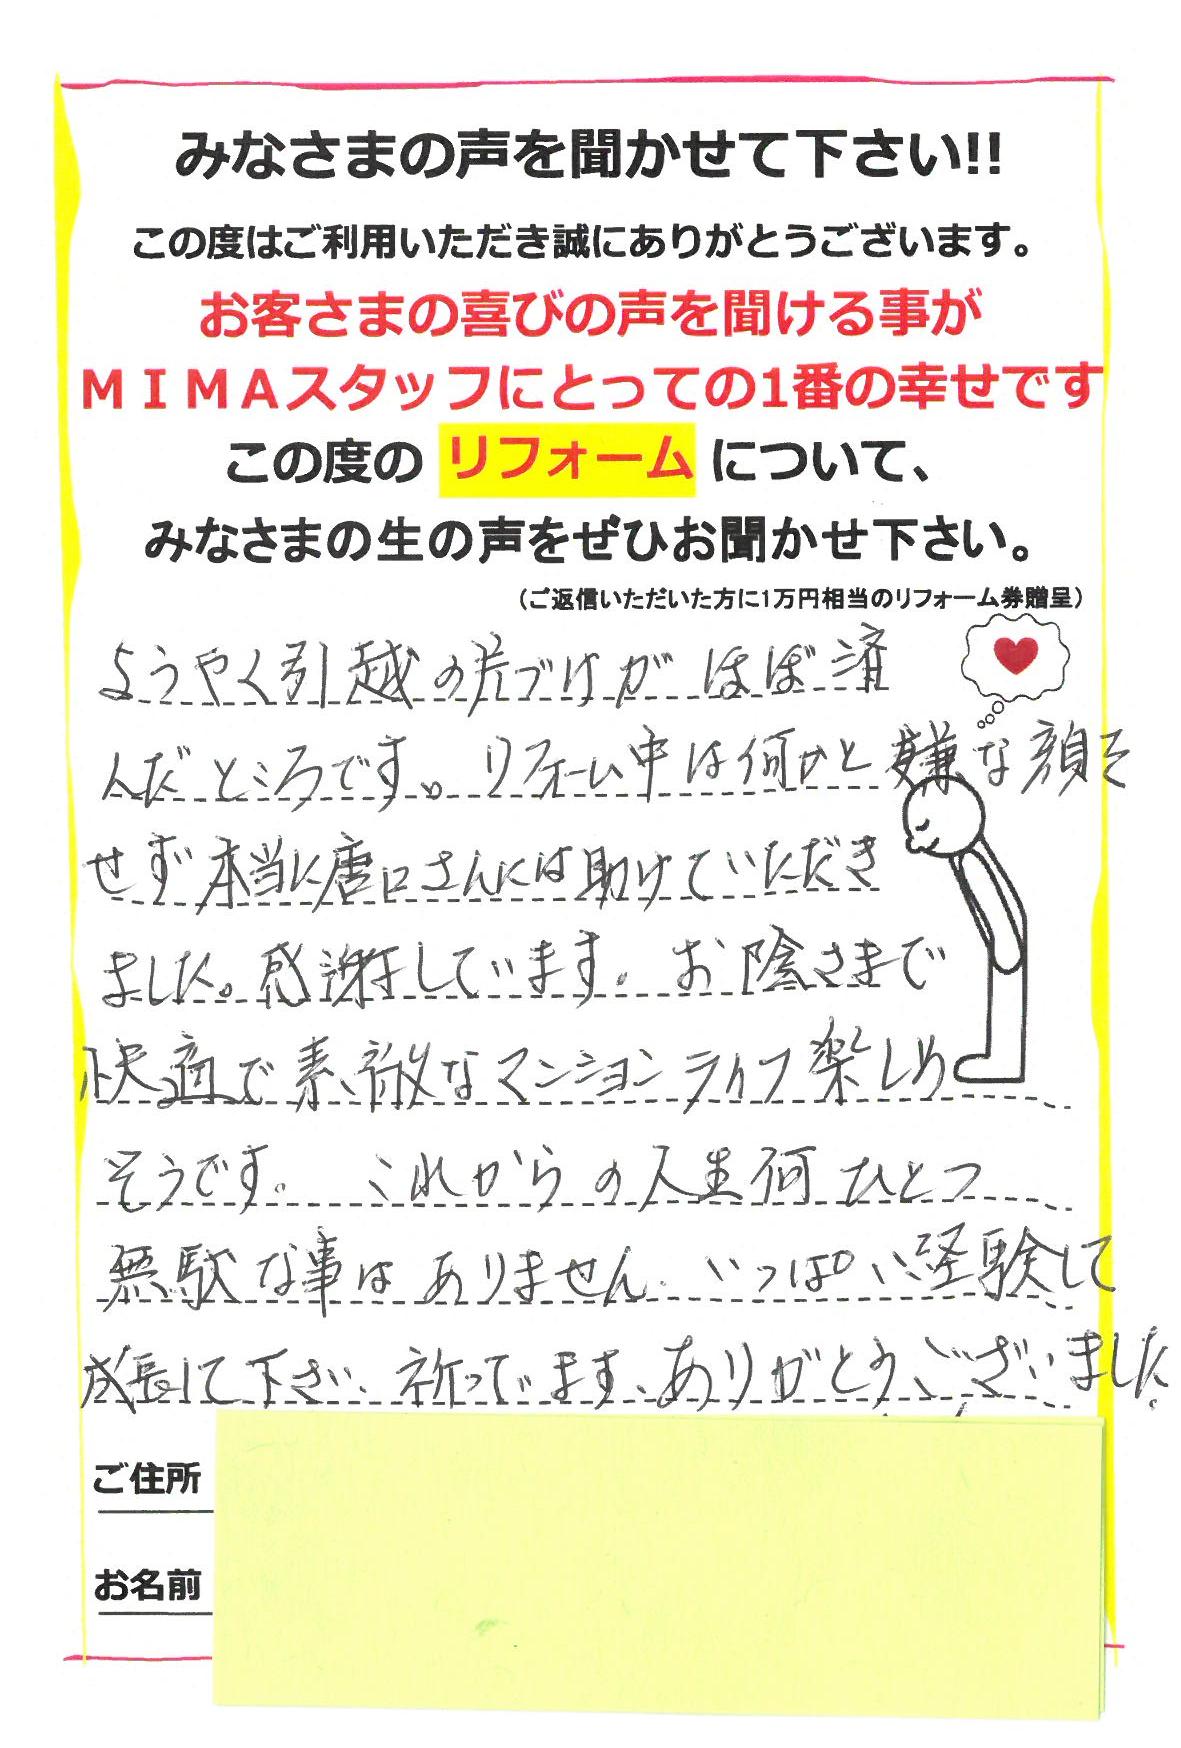 みなさまの声を聞かせて下さい!!
この度はご利用いただき誠にありがとうございます。
お客さまの喜びの声を聞ける事が
ＭＩＭＡスタッフにとっての1番の幸せです
この度の リフォーム について、
みなさまの生の声をぜひお聞かせ下さい。
（ご返信いただいた方に1万円相当のリフォーム券贈呈）
ようやく引越の片づけがほぼ済
んだところです。リフォーム中は何かと嫌な顔を
せず本当に唐口さんには助けていただき
ました。感謝しています。お陰さまで
快適で素敵なマンションライフ楽しめ
そうです。これからの人生何ひとつ
無駄な事はありません。いっぱい経験して
成長して下さい。祈ってます。ありがとうございました。
ご住所
お名前